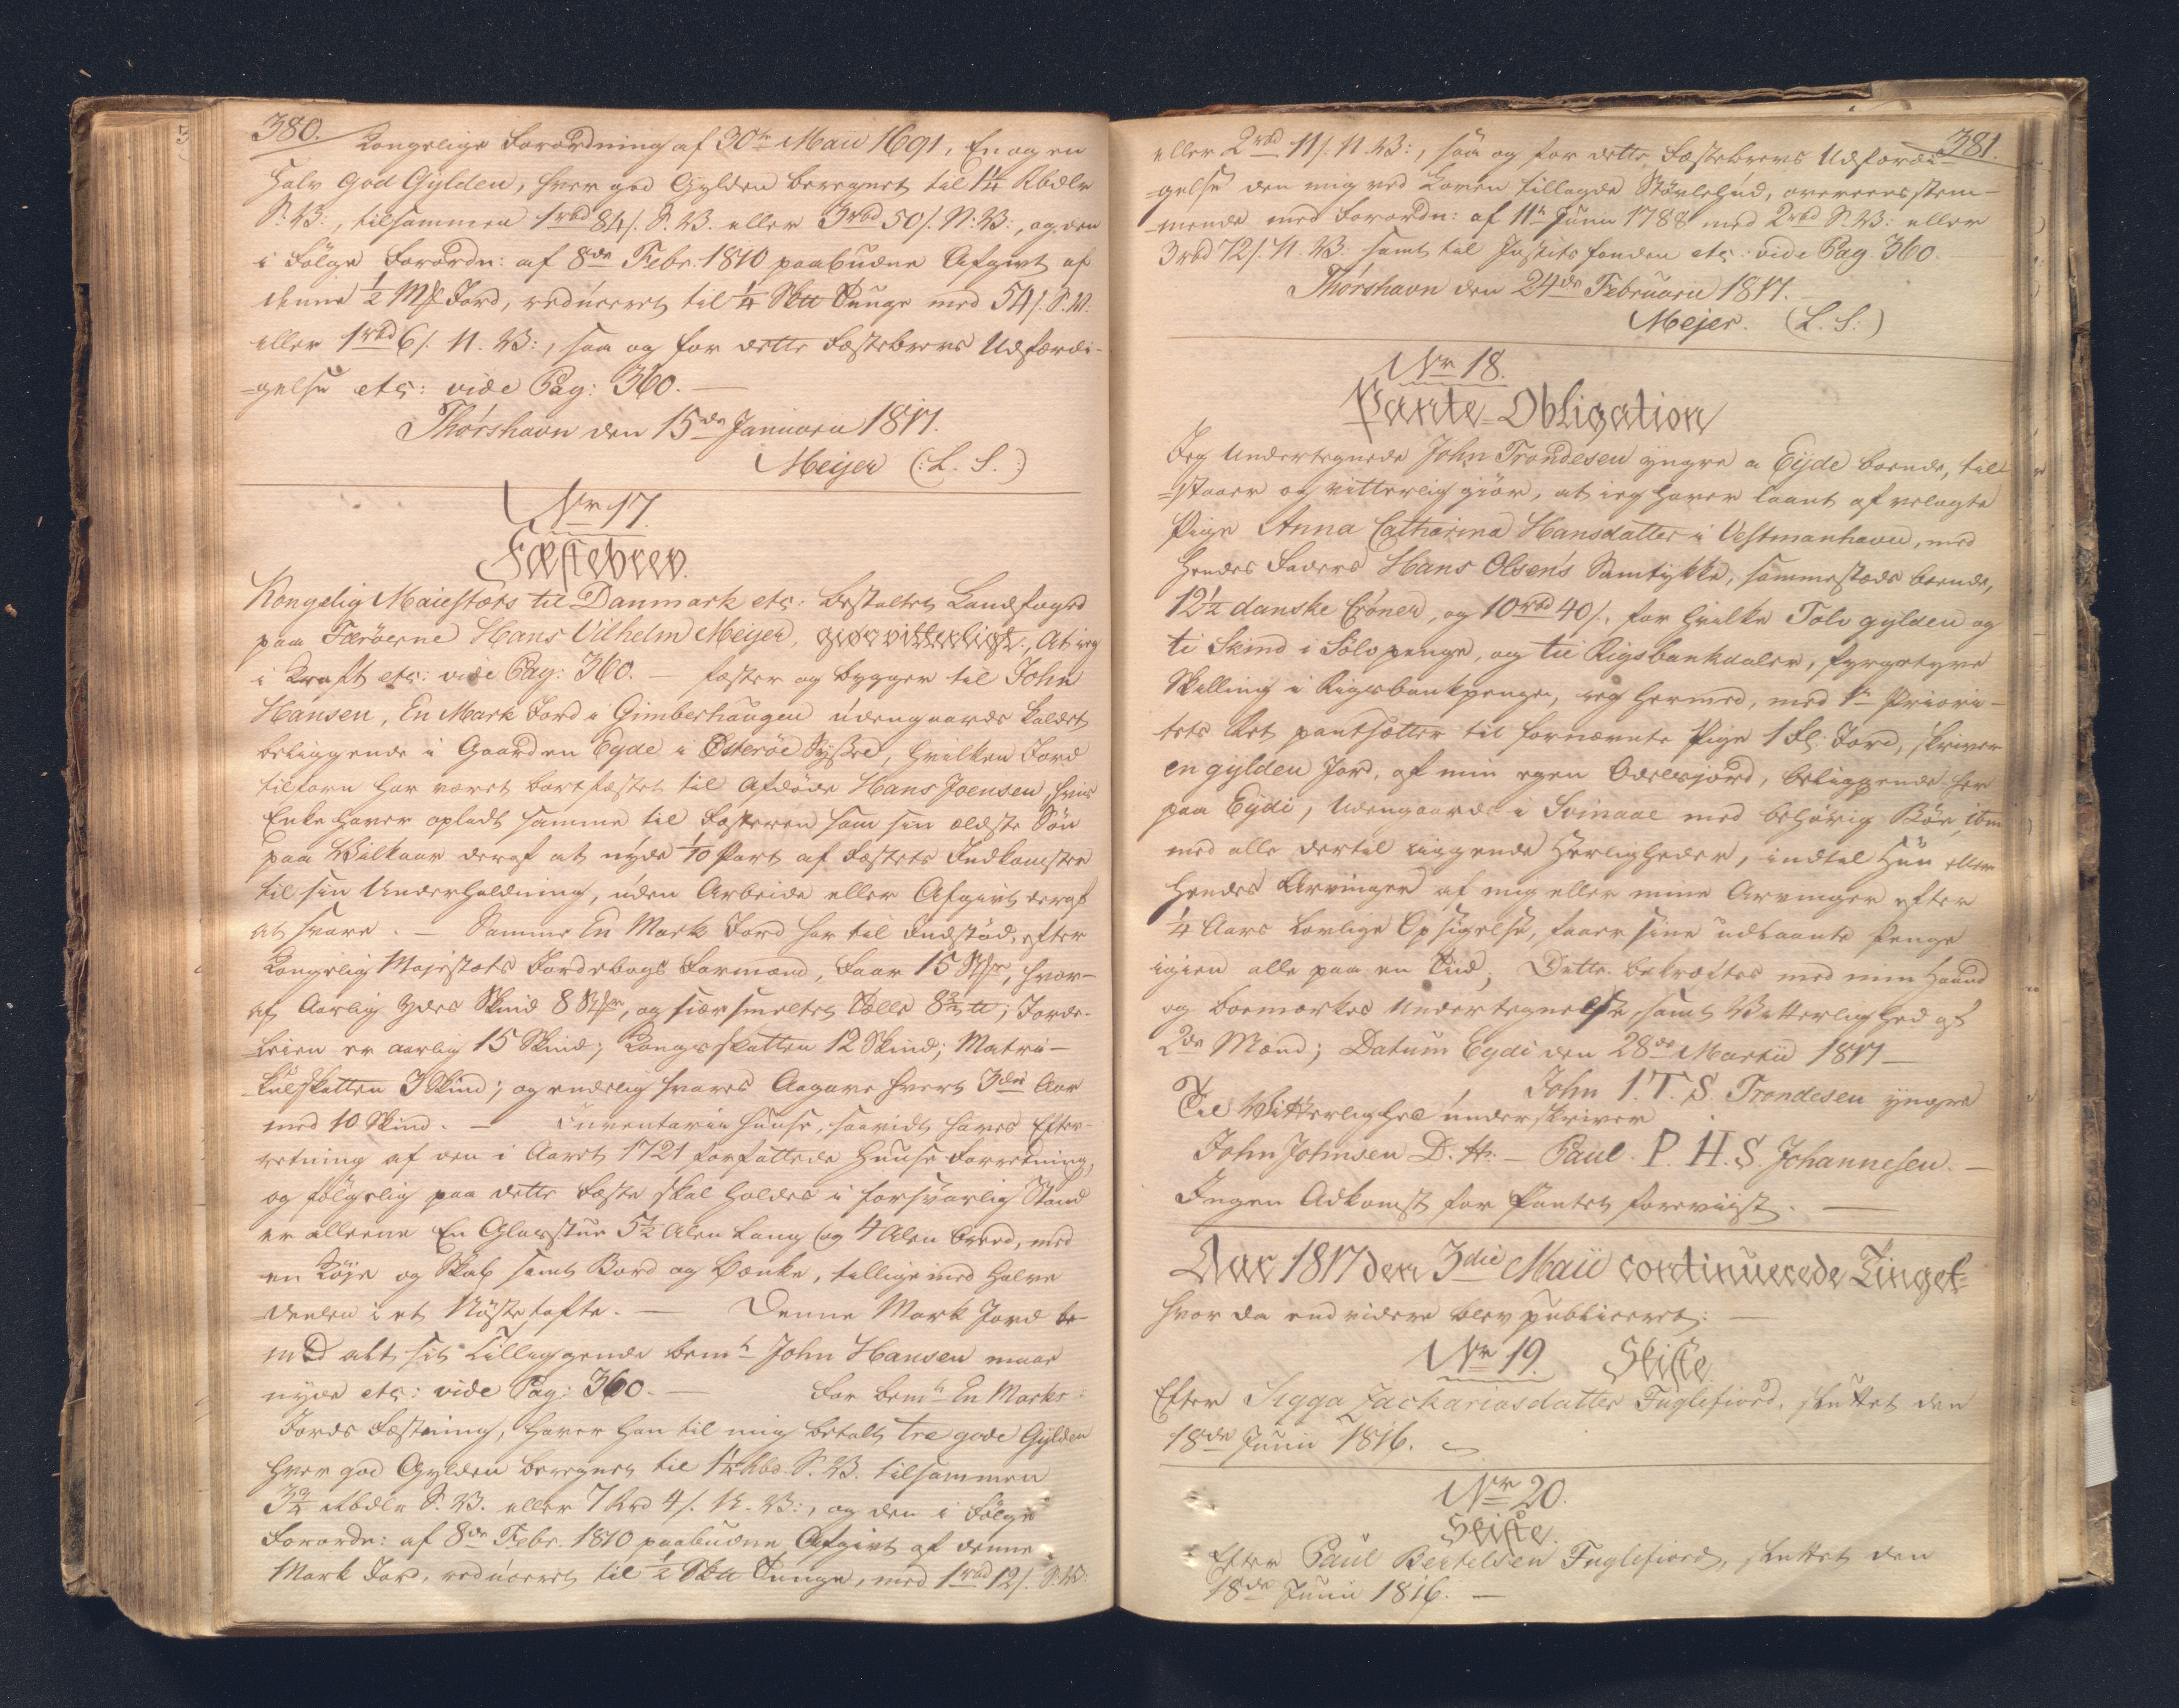 380.
Kongelige Forordning af 30te Maii 1691, En og en
halv god Gylden, hver god Gylden beregnet til 1¼ Rbdlr
S. V:, tilsammen 1rbd 84/. S. V. eller 3rbd 50/. N. V:, og den
i Følge Forordn: af 8de Febr. 1810 paabudne Afgivt af
denne ½ Mk Jord, reduceret til ¼ Tunge med 54/. S. V.
eller 1rbd 6/. N. V:, saa og for dette Fæstebrevs Udfærdi-
=gelse etc: vide Pag: 360. —
Thórshavn den 15de Januarii 1817.
Meijer (: L. S. :)
Nr 17.
Fæstebrev.
Kongelig Maiestæts til Danmark etc: bestalter Landfoged
paa Færöerne Hans Vilhelm Meijer, giør vitterligt: At ieg
i Kraft etc: vide Pag: 360. — fæster og bygger til John
Hansen, En Mark Jord i Gimberhaugen udengaards kaldet
beliggende i Gaarden Eyde i Österöe Syssel, hvilken Jord
tilforn har været bortfæstet til Afdöde Hans Joensen, hvis
Enke haver opladt samme til Fæsteren som sin ældste Sön
paa Vilkaar deraf at nyde 1/10 Part af Fæstets Indkomster
til sin Underholdning, uden Arbeide eller Afgivt deraf
at svare. — Samme En Mark Jord har til Indstöd, efter
Kongelig Majestæts Jordebogs Formand, Faar 15 Stkr, hvor-
af Aarlig ydes Skind 8 Stkr, og siær smeltet Tælle 8¾ ℔; Jorde-
Leien er aarlig 15 Skind; Kongsskatten 12 Skind; Matri-
kulskatten 3 Skind; og endelig svares Aagave hvert 3die Aar
med 10 Skind. — Inventarii Huuse, saavidt haves Efter-
retning af den i Aaret 1721 forfattede Huuse Forretning,
og fölgelig paa dette Fæste skal holdes i forsvarlig Stand
er alleene En Glarstue 5½ Alen Lang og 4 Alen breed, med
en Köje og Skab samt Bord og Bænke, tilligemed Halve
Deelen i et Nöstetofte. — Denne Mark Jord be-
med alt sit Tilliggende bemte John Hansen maae
nyde etc: vide Pag: 360. — For bemte En Marks
Jords Fæstning, haver han til mig betalt tre gode Gylden
hver god Gylden beregnet til 1¼ Rbd. S. V. tilsammen
3¾ Rbdlr S. V. eller 7 Rbd 4/. N. V:, og den i Følge
Forordn: af 8de Febr. 1810 paabudne Afgivt af denne
Mark Jord, reduceret til ½ Tunge, med 1rbd 12/. S. V.
381.
eller 2rbd 11/. N. V:, saa og for dette Fæstebrevs Udfærdi-
=gelse den mig ved Loven tillagde Stövlehud, overeensstem-
=mende med Forordn: af 11te Junii 1788 med 2rbd S. V: eller
3rbd 72/. N. V. samt til Justits fonden etc: vide Pag. 360.
Thórshavn den 24de Februarii 1817.
Mejer. (L. S.)
Nr 18.
Pante=Obligation
Jeg Undertegnede John Trondesen yngre a Eijde boende, til
=staaer og vitterlig giör, at ieg haver laant af velagte
Pige Anna Catharina Hansdatter i Vestmanhavn, med
hendes Faders Hans Olsen's Samtykke, sammesteds boende,
12½ danske Cróner, og 10rbd 40/. for hvilke Tolv gylden og
ti Skind i Sölvpenge, og tie Rigsbankdaler, fyrgetyve
Skilling i Rigsbankpenge, ieg hermed, med 1te Priori-
tets Ret pantsætter til fornævnte Pige 1 Gl: Jord, skriver
en gylden Jord, af min egen Odelsjord, beliggende her
paa Eijdi, udengaards i Svinaae med behörig Bör, item
med alle dertil liggende Herligheder, indtil hun eller
hendes Arvinger af mig eller mine Arvinger efter
¼ Aars Lovlige Opsigelse, faaer sine udlaante Penge
igien alle paa en Tiid; Dette bekræftes med min Haand
og boemærkes Undertegnelse, samt Vitterlighed af
2de Mænd; Datum Eydi den 28de Martii 1817 —
John I. T. S. Trondesen yngre
Til Vitterlighed underskriver
John Johnsen D. H. — Paul P. H. S. Johannesen. —
Ingen Adkomst for Pantet foreviist. —
Aar 1817 den 3die Maii continuerede Tinget
hvor da end videre blev publiceret: —
Nr 19. Skifte
Efter Sigga Zachariasdatter Fuglefiord, sluttet den
18de Junii 1816. —
Nr 20.
Skifte.
Efter Paul Bertelsen Fuglefiord, sluttet den
18de Junii 1816. —